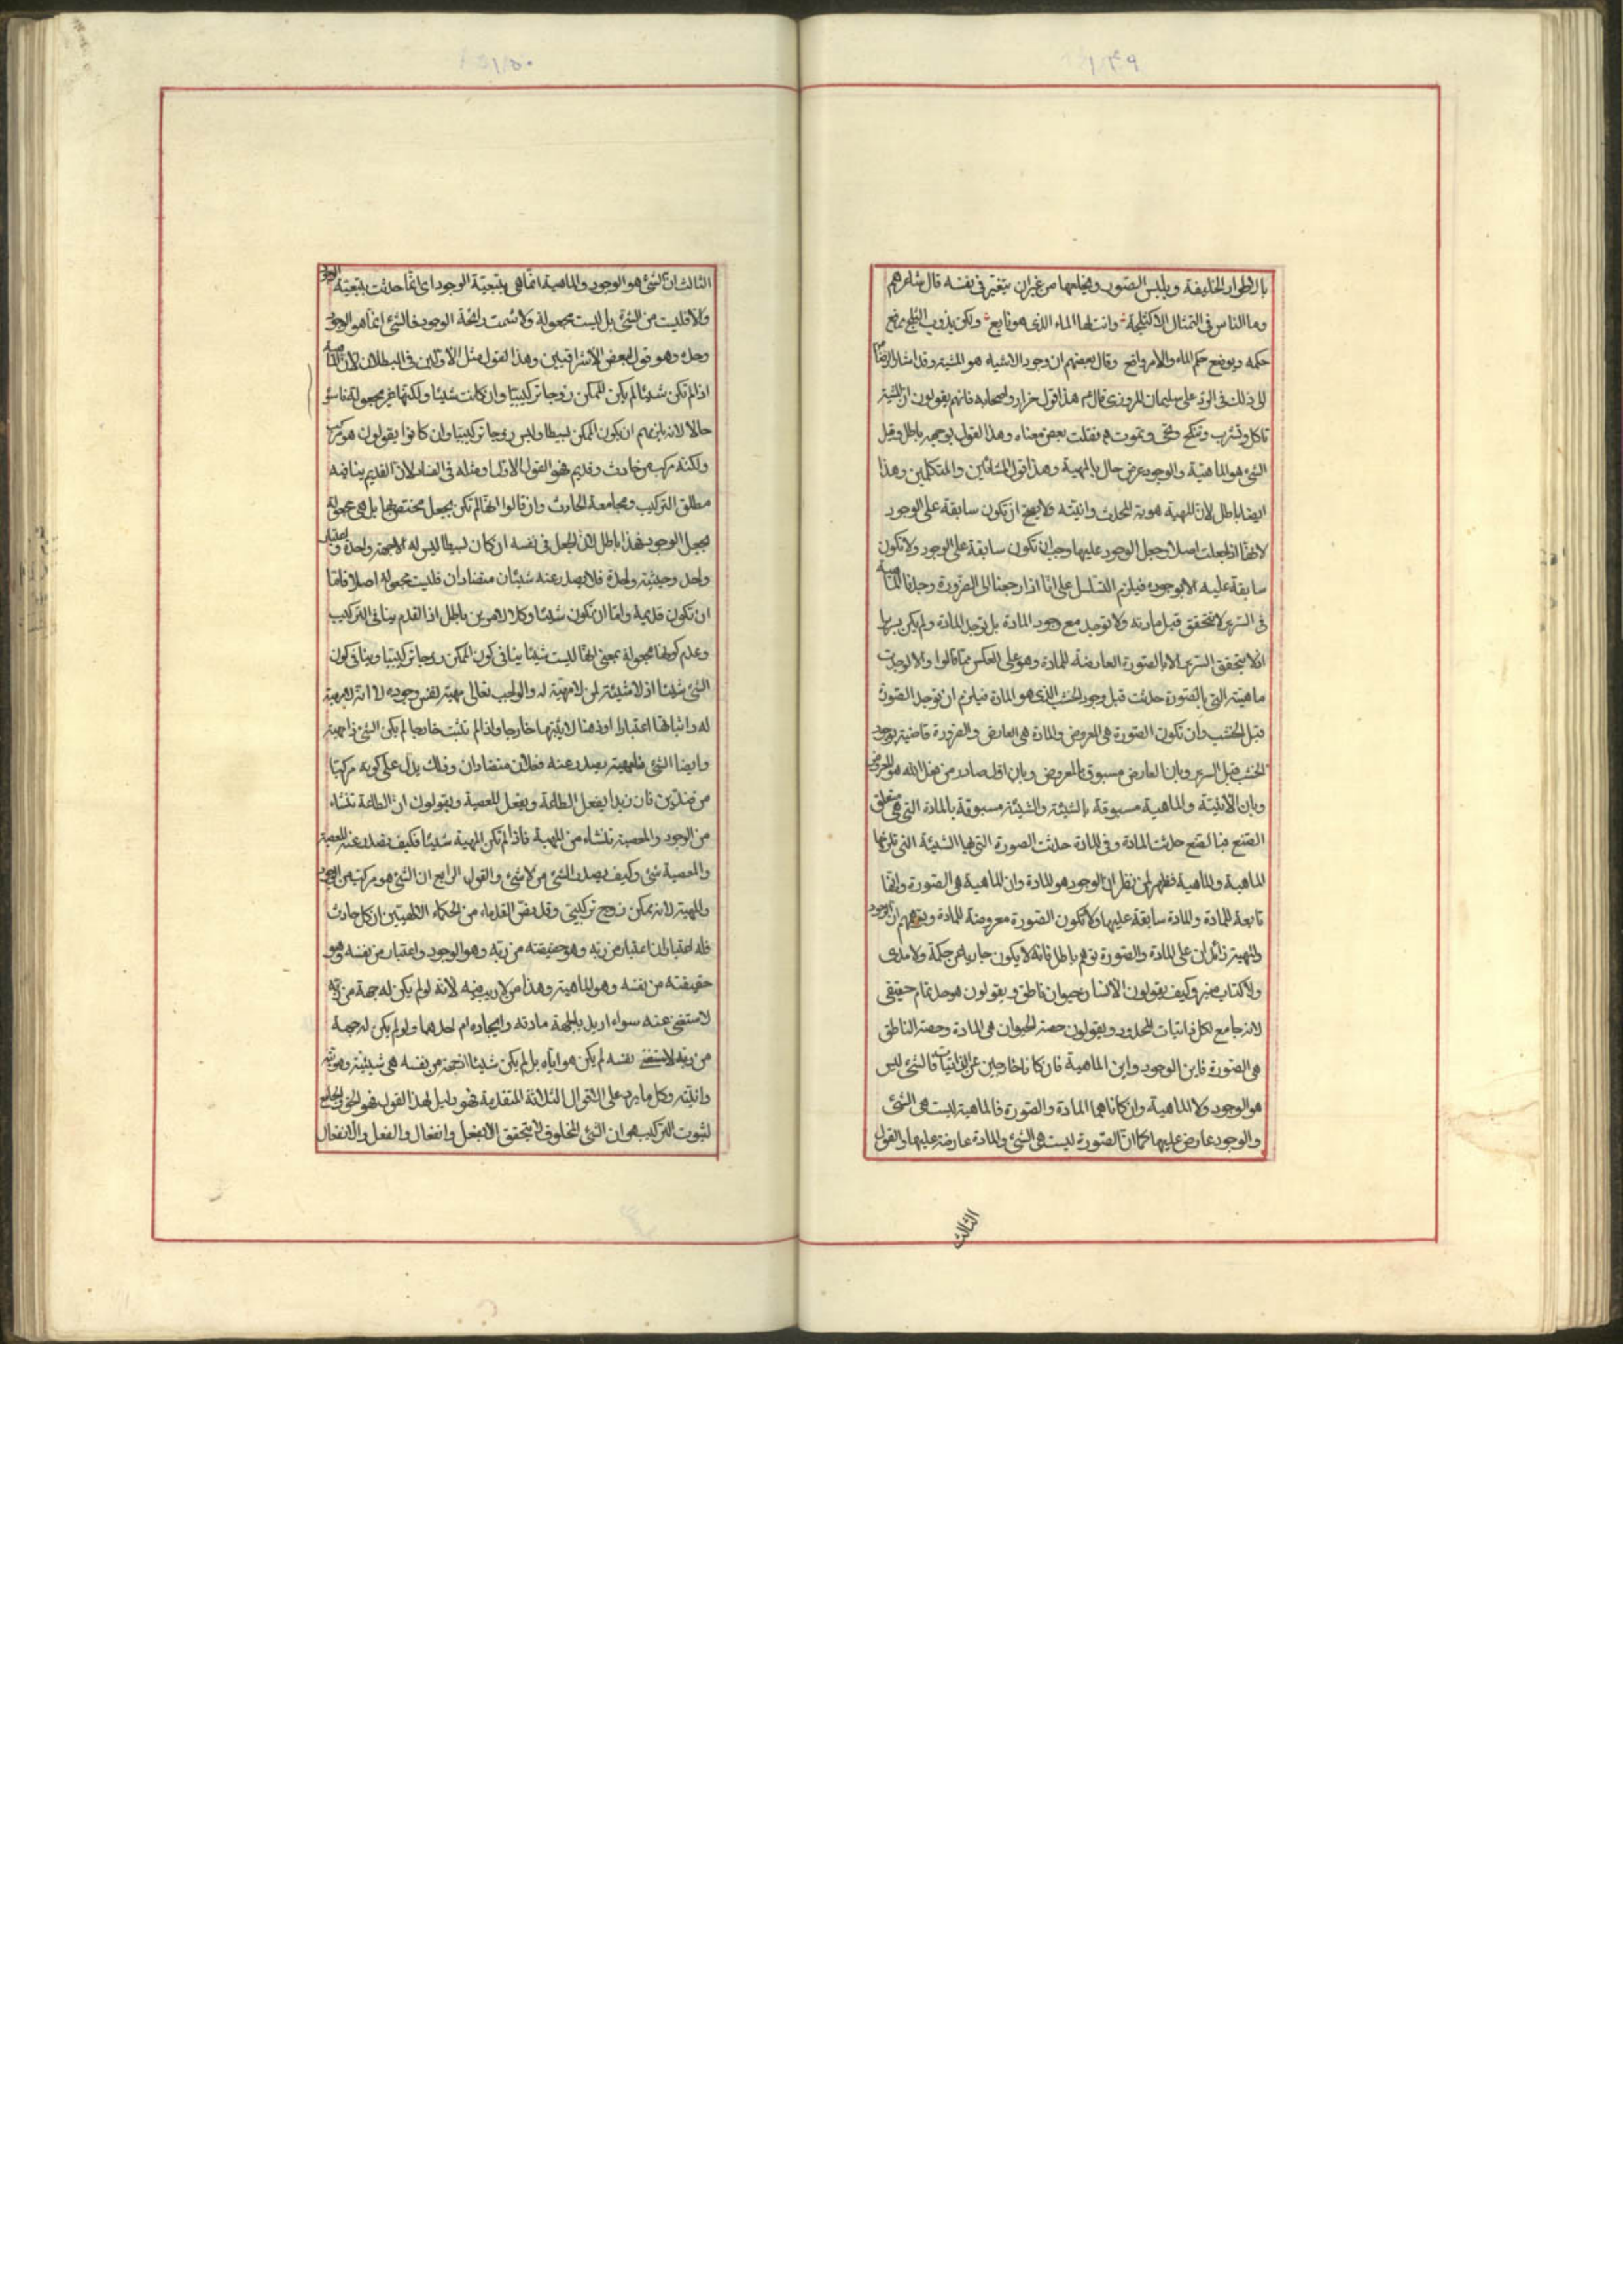 ١١٤٩
بالاطوار الخليقة ويلبس الصور ويخلعها من غير ان يتغير في نفسه قال شاعرهم
وما الناس في التمثال الا كثلجة وانت لها الماء الذي هو نابع ولكن يذوب الثلج يرفع
حكمه ويوضع حكم الماء والامر واقع وقال بعضهم ان وجود الاشياء هو المشية وقد اشار الرضا
الى ذلك في الرد على سليمان المروزي قال هذا قول ضرار واصحابه فانهم يقولون ان المشية
تاكل وتشرب وتنكح وتموت نقلت بعض معناه وهذا القول بوجهيه باطل وقيل
الشئ هو الماهية والوجود عرض حال بالمهية وهذا قول المشائين والمتكلمين وهذا
ايضا باطل لان المهية هوية المحدث وانيته ولا يصح ان تكون سابقة على الوجود
لانها اذا جعلت اصلا وجعل الوجود عليها وجب ان تكون سابقة على الوجود ولا تكون
سابقة عليه الا بوجود فيلزم التسلسل على انا اذا رجعنا الى الضرورة وجدنا الماهية
في السرير لا تتحقق قبل مادته ولا توجد مع وجود المادة بل توجد المادة ولم يكن سريرا
اذ لا يتحقق السرير الا بالصورة العارضة للمادة وهو على العكس مما قالوا والا لوجدت
ماهيته التي بالصورة حدثت قبل وجود الخشب الذي هو المادة فيلزم ان توجد الصورة
قبل الخشب وان تكون الصورة هي المعروض والمادة هي العارض والضرورة قاضية بوجود
الخشب قبل السرير وبان العارض مسبوق بالمعروض وبان اول صادر من فعل الله هو المعروض
وبان الانيته والماهية مسبوقة بالشيئة والشيئة مسبوقة بالمادة التي هي متعلق
الصنع فبالصنع حدثت المادة وفي المادة حدثت الصورة التي بها الشيئة التي تلزمها
الماهية والماهية فظهر لمن نظر ان الوجود هو المادة وان الماهية هي الصورة وانها
تابعة للمادة والمادة سابقة عليها ولا تكون الصورة معروضة للمادة وتوهم ان الوجود
والمهية زائدان على المادة والصورة توهم باطل فانه لا يكون جاريا عن حكمة ولا هدى
ولا كتاب منير وكيف يقولون الانسان حيوان ناطق ويقولون هو حد تام حقيقي
لانه جامع لكل ذاتيات المحدود ويقولون حصة الحيوان هي المادة وحصة الناطق
هي الصورة فاين الوجود واين الماهية فان كانا خارجين عن الذاتيات فالشئ ليس
هو الوجود ولا الماهية وان كانا هما المادة والصورة فالماهية ليست هي الشئ
والوجود عارض عليها كما ان الصورة ليست هي الشئ والمادة عارضة عليها والقول
الثالث
١١٥٠
الثالث ان الشئ هو الوجود والماهية انما هي بتبعية الوجود اي انما حدثت بتبعية الوجود
والا فليست من الشئ بل ليست مجعولة ولا شمت رائحة الوجود فالشئ انما هو الوجود
وحده وهو قول بعض الاشراقيين وهذا القول مثل الاولين في البطلان لان الماهية
اذا لم تكن شيئا لم يكن الممكن زوجا تركيبيا وان كانت شيئا ولكنها غير مجعولة
حالا لانه يلزمهم ان يكون الممكن بسيطا وليس زوجا تركيبيا وان كانوا يقولون هو مركب
ولكنه مركب من حادث وقديم فهو القول الاول ومثله في الفساد لان القديم ينافيه
مطلق التركيب ومجامعة الحادث وان قالوا انها لم تكن بجعل مختص بها بل هي مجعولة
بجعل الوجود فهذا باطل لان الجعل في نفسه ان كان بسيطا ليس له الا جهة واحدة واعتبار
واحد وحيثية واحدة فلا يصدر عنه شيئان متضادان فليست مجعولة اصلا فاما
ان تكون قديمة واما ان تكون شيئا وكلا الامرين باطل اذ القدم ينافي التركيب
وعدم كونها مجعولة بمعنى انها ليست شيئا ينافي كون الممكن زوجا تركيبيا وينافي كون
الشئ شيئا اذ لا شيئية لمن لا مهية له والواجب تعالى مهيته نفس وجوده لا انه لا مهية
له واثباتها اعتبارا او ذهنا لا يثبتها خارجا واذا لم تثبت خارجا لم يكن الشئ ذا مهية
وايضا الشئ بالمهية يصدر عنه فعلان متضادان وذلك يدل على كونه مركبا
من ضدين فان زيدا يفعل الطاعة ويفعل المعصية ويقولون ان الطاعة تنشاء
من الوجود والمعصية تنشاء من المهية فاذا لم تكن المهية شيئا فكيف تصدر عنه المعصية
والمعصية شئ وكيف يصدر الشئ من لا شئ والقول الرابع ان الشئ هو مركب من الوجود
والمهية لانه ممكن زوج تركيبي وقد نص القدماء من الحكماء الالهيين ان كل حادث
فله اعتباران اعتبار من ربه وهو حقيقته من ربه وهو الوجود واعتبار من نفسه وهو
حقيقته من نفسه وهو الماهية وهذا من لا ريب فيه لانه لو لم يكن له جهة من ربه
لاستغنى عنه سواء اريد بالجهة مادته وايجاده ام احدهما ولو لم يكن له جهة
من ربه لاستغنى نفسه لم يكن هو اياه بل لم يكن شيئا اذ جهته من نفسه هي شيئيته وهويته
وانيته وكل ما يرد على الاقوال الثلاثة المتقدمة فهو دليل لهذا القول فهو الحق
لثبوت التركيب هو ان الشئ المخلوق لا يتحقق الا بفعل وانفعال والفعل والانفعال